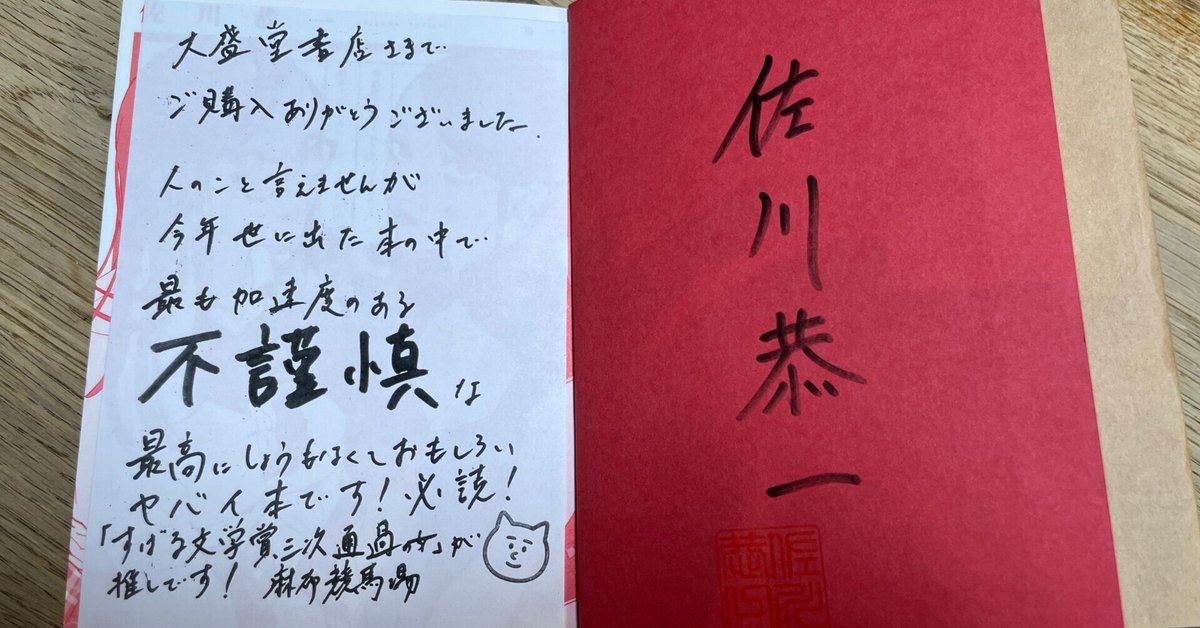 佐川恭一
大盛堂書店さまで
ご購入ありがとうございました。
人のこと言えませんが
今年世に出た本の中で
最も加速度のある
不謹慎な
最高にしょうもなくておもしろい
ヤバイ本です！必読！
「すばる文学賞三次通過の女」が
推しです！ 麻布競馬場
佐川恭一